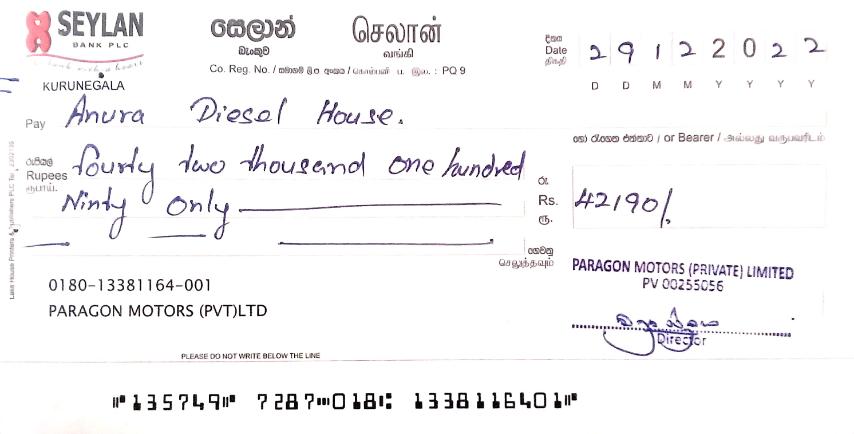 SEYLAN
BANK PLC
bank with a heart
සෙලාන්
බැංකුව
செலான்
வங்கி
Co. Reg. No. / සමාගම් ලියා. අංකය / கொம்பனி ப. இல. : PQ 9
දිනය
Date
திகதி
2 9 1 2 2 0 2 2
D D M M Y Y Y Y
KURUNEGALA
Pay Anura Diesel House.
හෝ රැගෙන එන්නාට / or Bearer / அல்லது வருபவரிடம்
රුපියල්
Rupees
ரூபாய்.
fourty two thousand one hundred
Ninty Only
රු.
Rs.
ரூ.
42190/.
ගෙවනු
செலுத்தவும்
PARAGON MOTORS (PRIVATE) LIMITED
PV 00255056
Director
0180-13381164-001
PARAGON MOTORS (PVT)LTD
PLEASE DO NOT WRITE BELOW THE LINE
⑈135749⑈ 7287⑉018⑆ 1338116401⑈